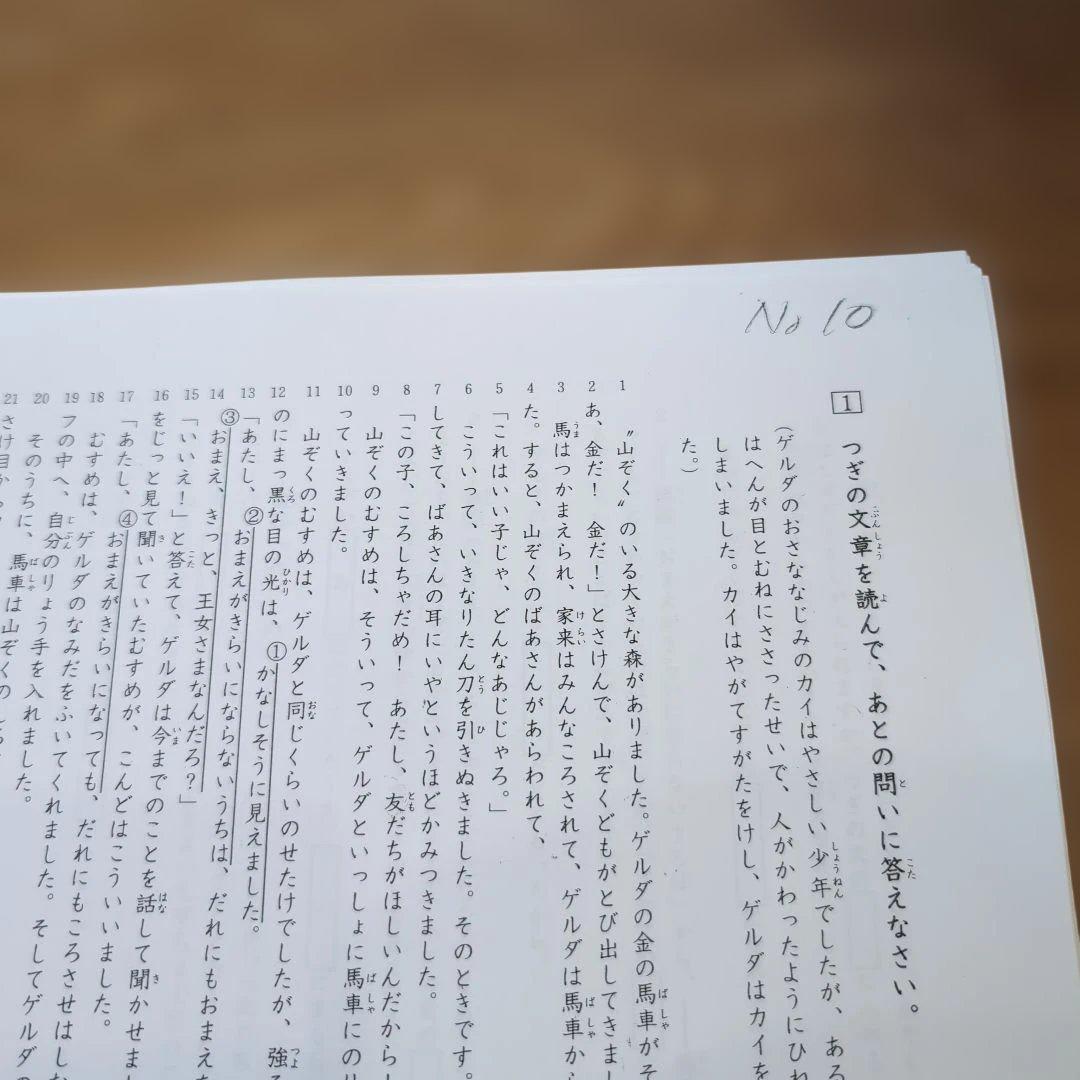 No 10
1 つぎの文章を読んで、あとの問いに答えなさい。
(ゲルダのおさななじみのカイはやさしい少年でしたが、ある
はへんが目とむねにささったせいで、人がかわったようにひね
しまいました。カイはやがてすがたをけし、ゲルダはカイを
た。)
1 〝山ぞく〟のいる大きな森がありました。ゲルダの金の馬車がそ
2 あ、金だ! 金だ!」とさけんで、山ぞくどもがとび出してきまし
3 馬はつかまえられ、家来はみんなころされて、ゲルダは馬車から
4 た。すると、山ぞくのばあさんがあらわれて、
5 「これはいい子じゃ、どんなあじじゃろ。」
6 こういって、いきなりたん刀を引きぬきました。そのときです。
7 してきて、ばあさんの耳にいやというほどかみつきました。
8 「この子、ころしちゃだめ! あたし、友だちがほしいんだから
9 山ぞくのむすめは、そういって、ゲルダといっしょに馬車にの
10 っていきました。
11 山ぞくのむすめは、ゲルダと同じくらいのせたけでしたが、強
12 のにまっ黒な目の光は、①かなしそうに見えました。
13 「あたし、②おまえがきらいにならないうちは、だれにもおまえ
14 ③おまえ、きっと、王女さまなんだろ?」
15 「いいえ!」と答えて、ゲルダは今までのことを話して聞かせま
16 をじっと見て聞いていたむすめが、こんどはこういいました。
17 「あたし、④おまえがきらいになっても、だれにもころさせはし
18 むすめは、ゲルダのなみだをふいてくれました。そしてゲルダ
19 フの中へ、自分のりょう手を入れました。
20 そのうちに、馬車は山ぞくの
21